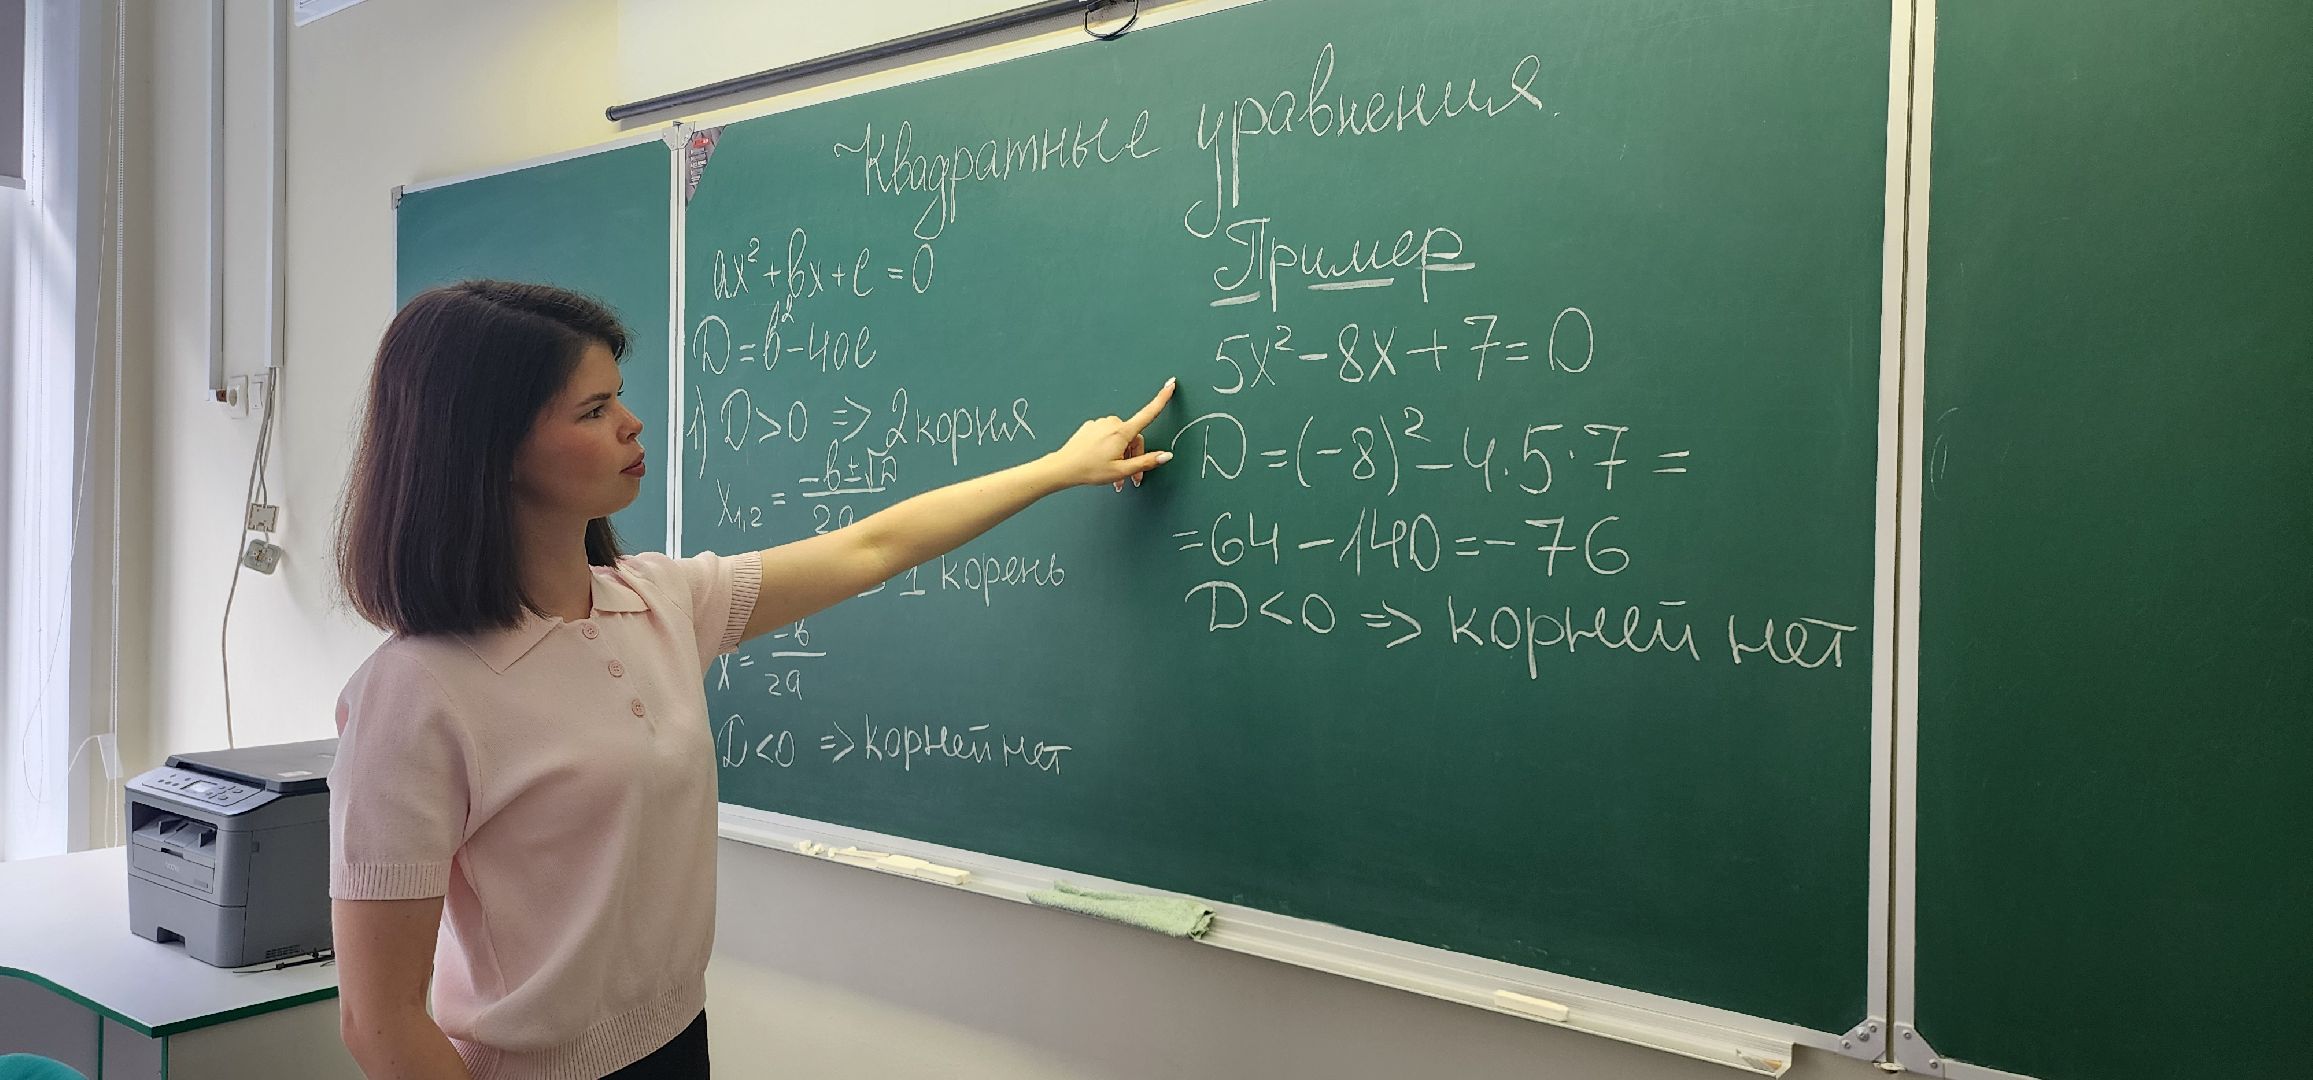 Квадратные уравнения.
ax²+bx+c=0
D=b²-4ac
1) D>0 => 2 корня
x₁,₂ = -b±√D / 2a
1 корень
x = -b / 2a
D<0 => корней нет
Пример
5x²-8x+7=0
D=(-8)²-4·5·7=
=64-140=-76
D<0 => корней нет